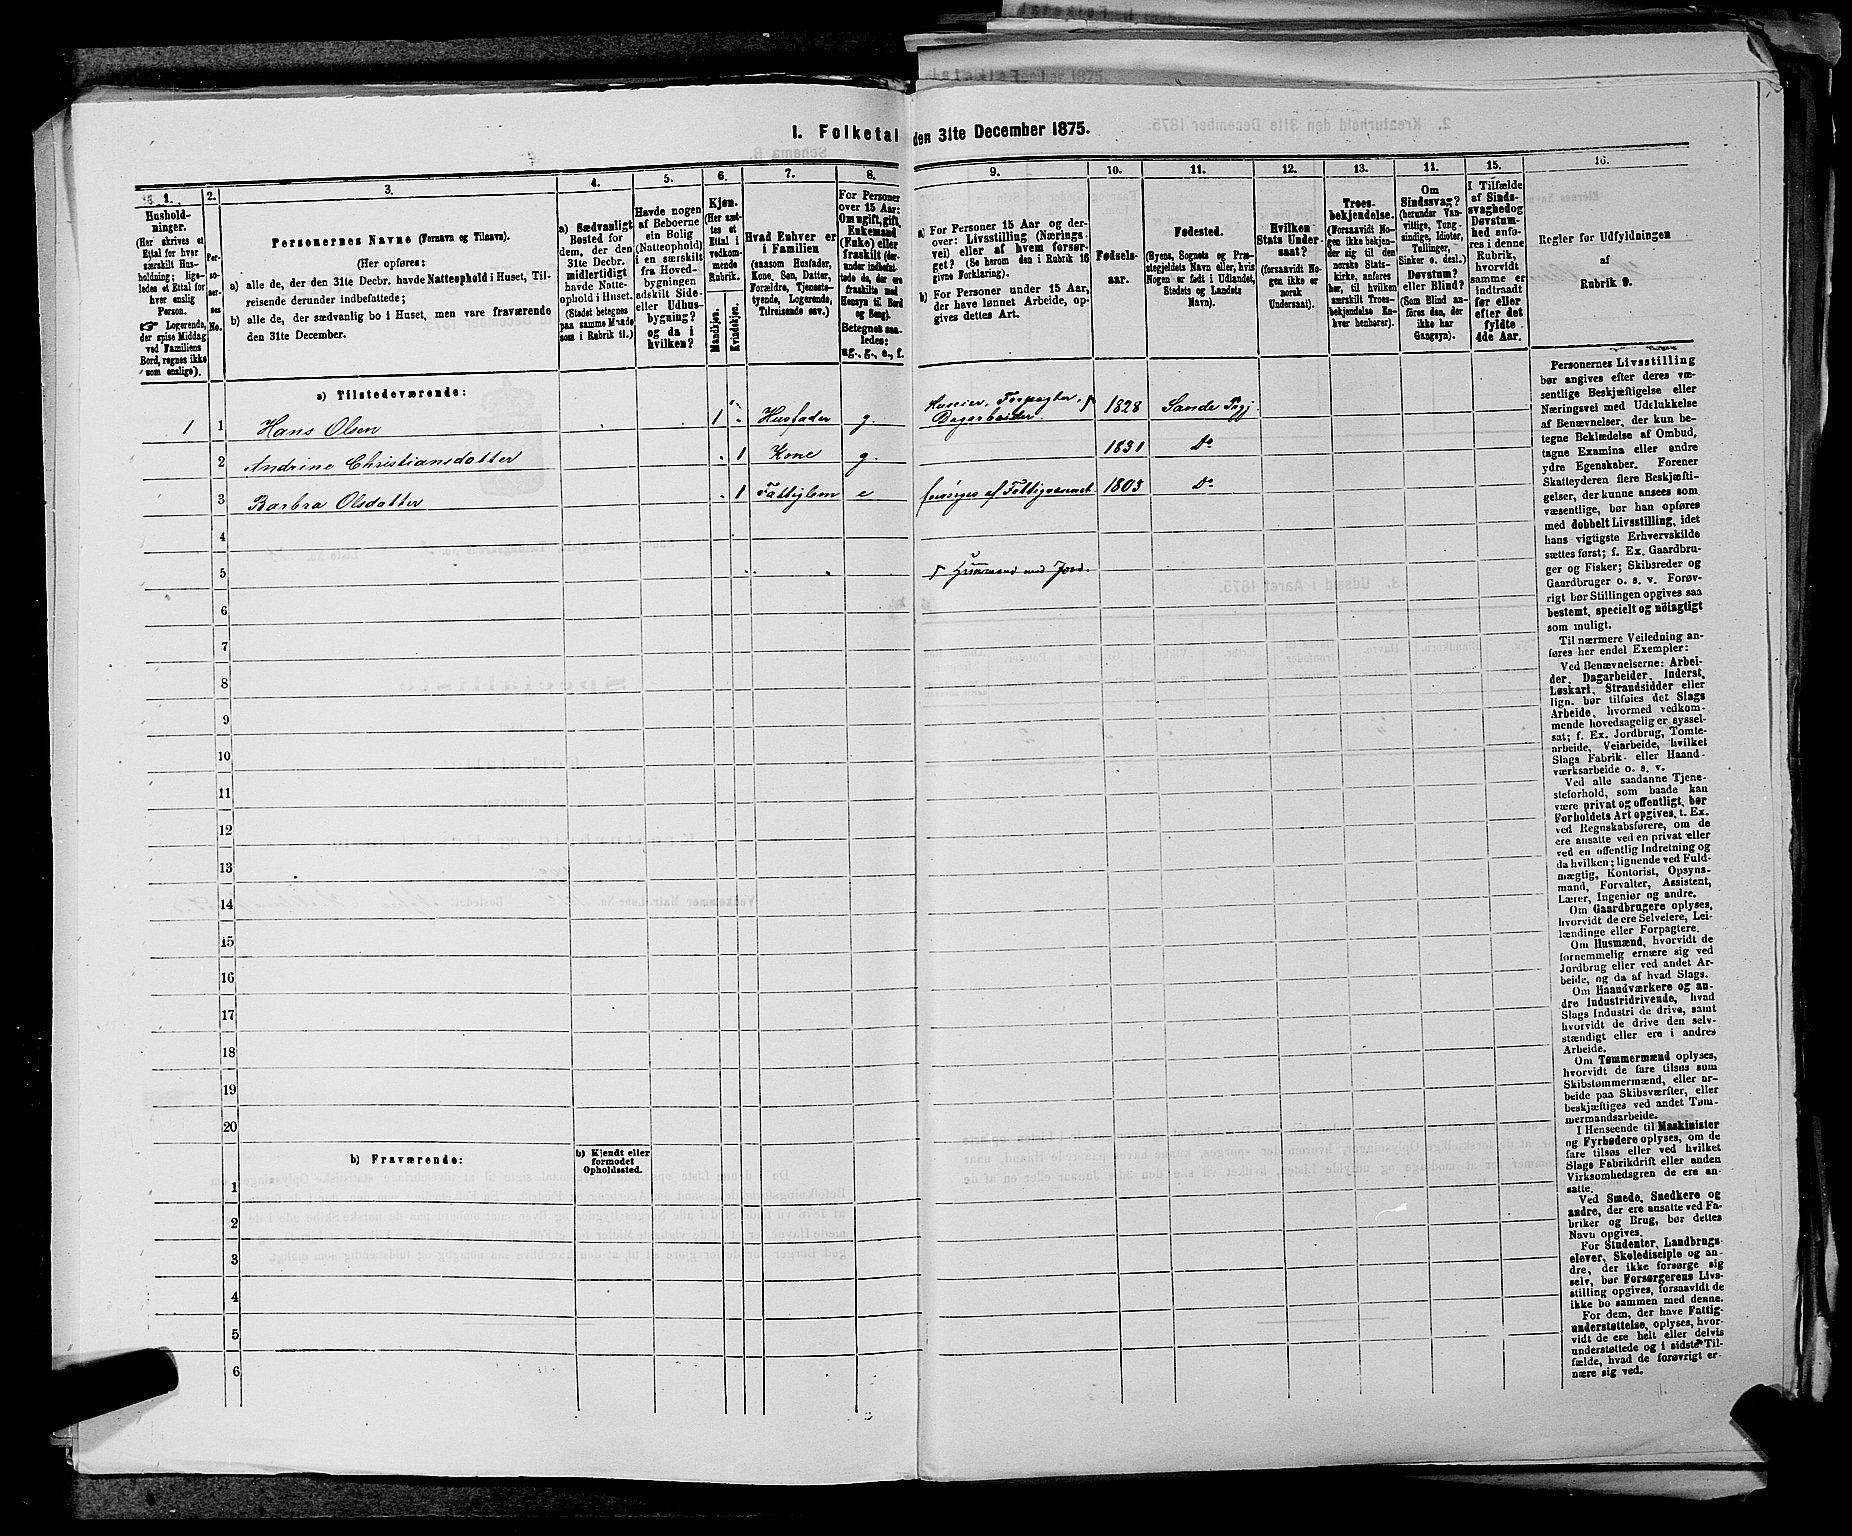 I. Folketal den 31te December 1875.
1.
Hushold-
ninger.
(Her skrives et
Ettal for hver
særskilt Hus-
holdning; lige-
ledes et Ettal for
hver enslig
Person.
Logerende,
der spise Middag
ved Familiens
Bord, regnes ikke
som enslige).
2.
Per-
so-
ner-
nes
No.
3.
Personernes Navne (Fornavn og Tilnavn).
(Her opføres:
a) alle de, der den 31te Decbr. havde Natteophold i Huset, Til-
reisende derunder indbefattede;
b) alle de, der sædvanlig bo i Huset, men vare fraværende
den 31te December.
4.
a) Sædvanligt
Bosted for
dem, der den
31te Decbr.
midlertidigt
havde Natte-
ophold i Huset.
(Stedet betegnes
paa samme Maade
som i Rubrik 11.)
5.
Havde nogen
af Beboerne
sin Bolig
(Natteophold)
i en særskilt
fra Hoved-
bygningen
adskilt Side-
eller Udhus-
bygning?
og da i
hvilken?
6.
Kjøn.
(Her sæt-
tes et
Ettal i
vedkom-
mende
Rubrik.
Mandkjøn.
Kvindekjøn.
7.
Hvad Enhver er
i Familien
(saasom Husfader,
Kone, Søn, Datter,
Forældre, Tjeneste-
tyende, Logerende,
Tilreisende osv.)
8.
For Personer
over 15 Aar:
Om ugift, gift,
Enkemand
(Enke) eller
fraskilt (der-
under indbefat-
tede de, der ere
fraskilte med
Hensyn til Bord
og Seng).
Betegnes saa-
ledes:
ug., g., e., f.
9.
a) For Personer 15 Aar og der-
over: Livsstilling (Nærings-
vei) eller af hvem forsør-
get? (Se herom den i Rubrik 16
givne Forklaring).
b) For Personer under 15 Aar,
der have lønnet Arbeide, op-
gives dettes Art.
10.
Fødsels-
aar.
11.
Fødested.
(Byens, Sognets og Præ-
stegjeldets Navn eller, hvis
Nogen er født i Udlandet,
Stedets og Landets
Navn).
12.
Hvilken
Stats Under-
saat?
(forsaavidt No-
gen ikke er
norsk
Undersaat).
13.
Troes-
bekjendelse.
(Forsaavidt No-
gen ikke bekjen-
der sig til den
norske Stats-
kirke, anføres
her, til hvilken
særskilt Troes-
bekjendelse En-
hver henhører).
14.
Om
Sindssvag?
(herunder Van-
vittige, Tung-
sindige, Idioter,
Tullinger,
Sinker o. desl.)
Døvstum?
eller Blind?
(Som Blind an-
føres den, der
ikke har
Gangsyn).
15.
I Tilfælde
af Sinds-
svaghed og
Døvstum-
hed anfø-
res i denne
Rubrik,
hvorvidt
samme er
indtraadt
før eller
efter det
fyldte
4de Aar.
16.
Regler for Udfyldningen
af
Rubrik 9.
a) Tilstedeværende:
1 1 Hans Olsen 1 Husfader g. Huseier, Forpagter, Dagarbeider 1828 Sande Pgj
2 Andrine Christiansdatter 1 Kone g. 1831 Do
3 Barbra Olsdatter 1 Fattiglem e forsørges af Fattigvæsenet 1803 Do
4
5 Husmand med Jord.
6
7
8
9
10
11
12
13
14
15
16
17
18
19
20
b) Fraværende:
b) Kjendt eller
formodet
Opholdssted.
1
2
3
4
5
6
Personernes Livsstilling
bør angives efter deres væ-
sentlige Beskjæftigelse eller
Næringsvei med Udelukkelse
af Benævnelser, der kun be-
tegne Beklædelse af Ombud,
tagne Examina eller andre
ydre Egenskaber. Forener
Skatteyderen flere Beskjæfti-
gelser, der kunne ansees som
væsentlige, bør han opføres
med dobbelt Livsstilling, idet
hans vigtigste Erhvervskilde
sættes først; f. Ex. Gaardbru-
ger og Fisker; Skibsreder og
Gaardbruger o. s. v. Forøv-
rigt bør Stillingen opgives saa
bestemt, specielt og nöiagtigt
som muligt.
Til nærmere Veiledning an-
føres her endel Exempler:
Ved Benævnelserne: Arbei-
der, Dagarbeider, Inderst,
Løskarl, Strandsidder eller
lign. bør tilføies det Slags
Arbeide, hvormed vedkom-
mende hovedsagelig er syssel-
sat; f. Ex. Jordbrug, Tomte-
arbeide, Veiarbeide, hvilket
Slags Fabrik- eller Haand-
værksarbeide o. s. v.
Ved alle saadanne Tjene-
steforhold, som baade kan
være privat og offentligt, bør
Forholdets Art opgives, t. Ex.
ved Regnskabsførere, om de
ere ansatte ved en privat eller
ved en offentlig Indretning og
da hvilken; lignende ved Fuld-
mægtig, Kontorist, Opsyns-
mand, Forvalter, Assistent,
Lærer, Ingeniør og andre.
Om Gaardbrugere oplyses,
hvorvidt de ere Selveiere, Lei-
lændinge eller Forpagtere.
Om Husmænd, hvorvidt de
fornemmelig ernære sig ved
Jordbrug eller ved andet Ar-
beide, og da af hvad Slags.
Om Haandværkere og an-
dre Industridrivende, hvad
Slags Industri de drive, samt
hvorvidt de drive den selv-
stændigt eller ere i andres
Arbeide.
Om Tømmermænd oplyses,
hvorvidt de fare tilsøs som
Skibstømmermænd, eller ar-
beide paa Skibsværfter, eller
beskjæftiges ved andet Tøm-
mermandsarbeide.
I Henseende til Maskinister
og Fyrbødere oplyses, om de
fare tilsøs eller ved hvilket
Slags Fabrikdrift eller anden
Virksomhedsgren de ere an-
satte.
Ved Smede, Snedkere og
andre, der ere ansatte ved Fa-
briker og Brug, bør dettes
Navn opgives.
For Studenter, Landbrugs-
elever, Skoledisciple og an-
dre, der ikke forsørge sig
selv, bør Forsørgerens Livs-
stilling opgives, forsaavidt de
ikke bo sammen med denne.
For dem, der have Fattig-
understøttelse, oplyses, hvor-
vidt de ere helt eller delvis
understøttede og i sidste Til-
fælde, hvad de forøvrigt er-
nære sig ved.